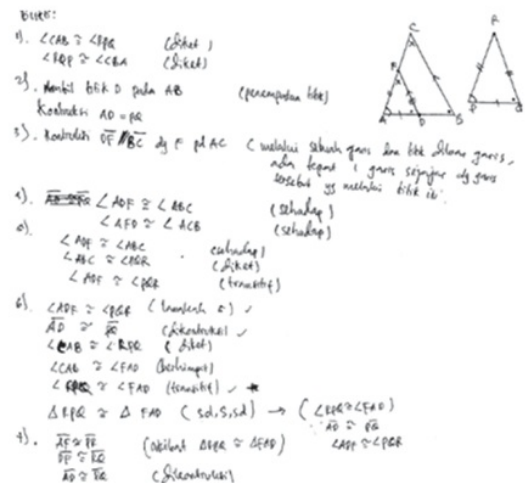 Bukti:
1). ∠CAB ≅ ∠RPQ (diket)
∠RQP ≅ ∠CBA (diket)
2). Ambil titik D pada AB (penempatan titik)
Konstruksi AD = PQ
3). Konstruksi DF // BC dg F pd AC (melalui sebuah garis dan titik diluar garis,
ada tepat 1 garis sejajar dg garis
tersebut yg melalui titik itu.
4). ∠ADF ≅ ∠ABC (sehadap)
∠AFD ≅ ∠ACB (sehadap)
5).
∠ADF ≅ ∠ABC (sehadap)
∠ABC ≅ ∠PQR (diket)
∠ADF ≅ ∠PQR (transitif)
6). ∠ADF ≅ ∠PQR (langkah 5) ✓
AD ≅ PQ (dikonstruksi) ✓
∠CAB ≅ ∠RPQ (diket)
∠CAB ≅ ∠FAD (berhimpit)
∠RPQ ≅ ∠FAD (transitif) ✓
△RPQ ≅ △FAD (sd,S,sd) → (∠RPQ ≅ ∠FAD)
AD ≅ PQ
∠ADF ≅ ∠PQR
7). AF ≅ PR (akibat △RPQ ≅ △FAD)
DF ≅ RQ
AD ≅ (dikonstruksi)
C
F
A
D
B
R
P
Q